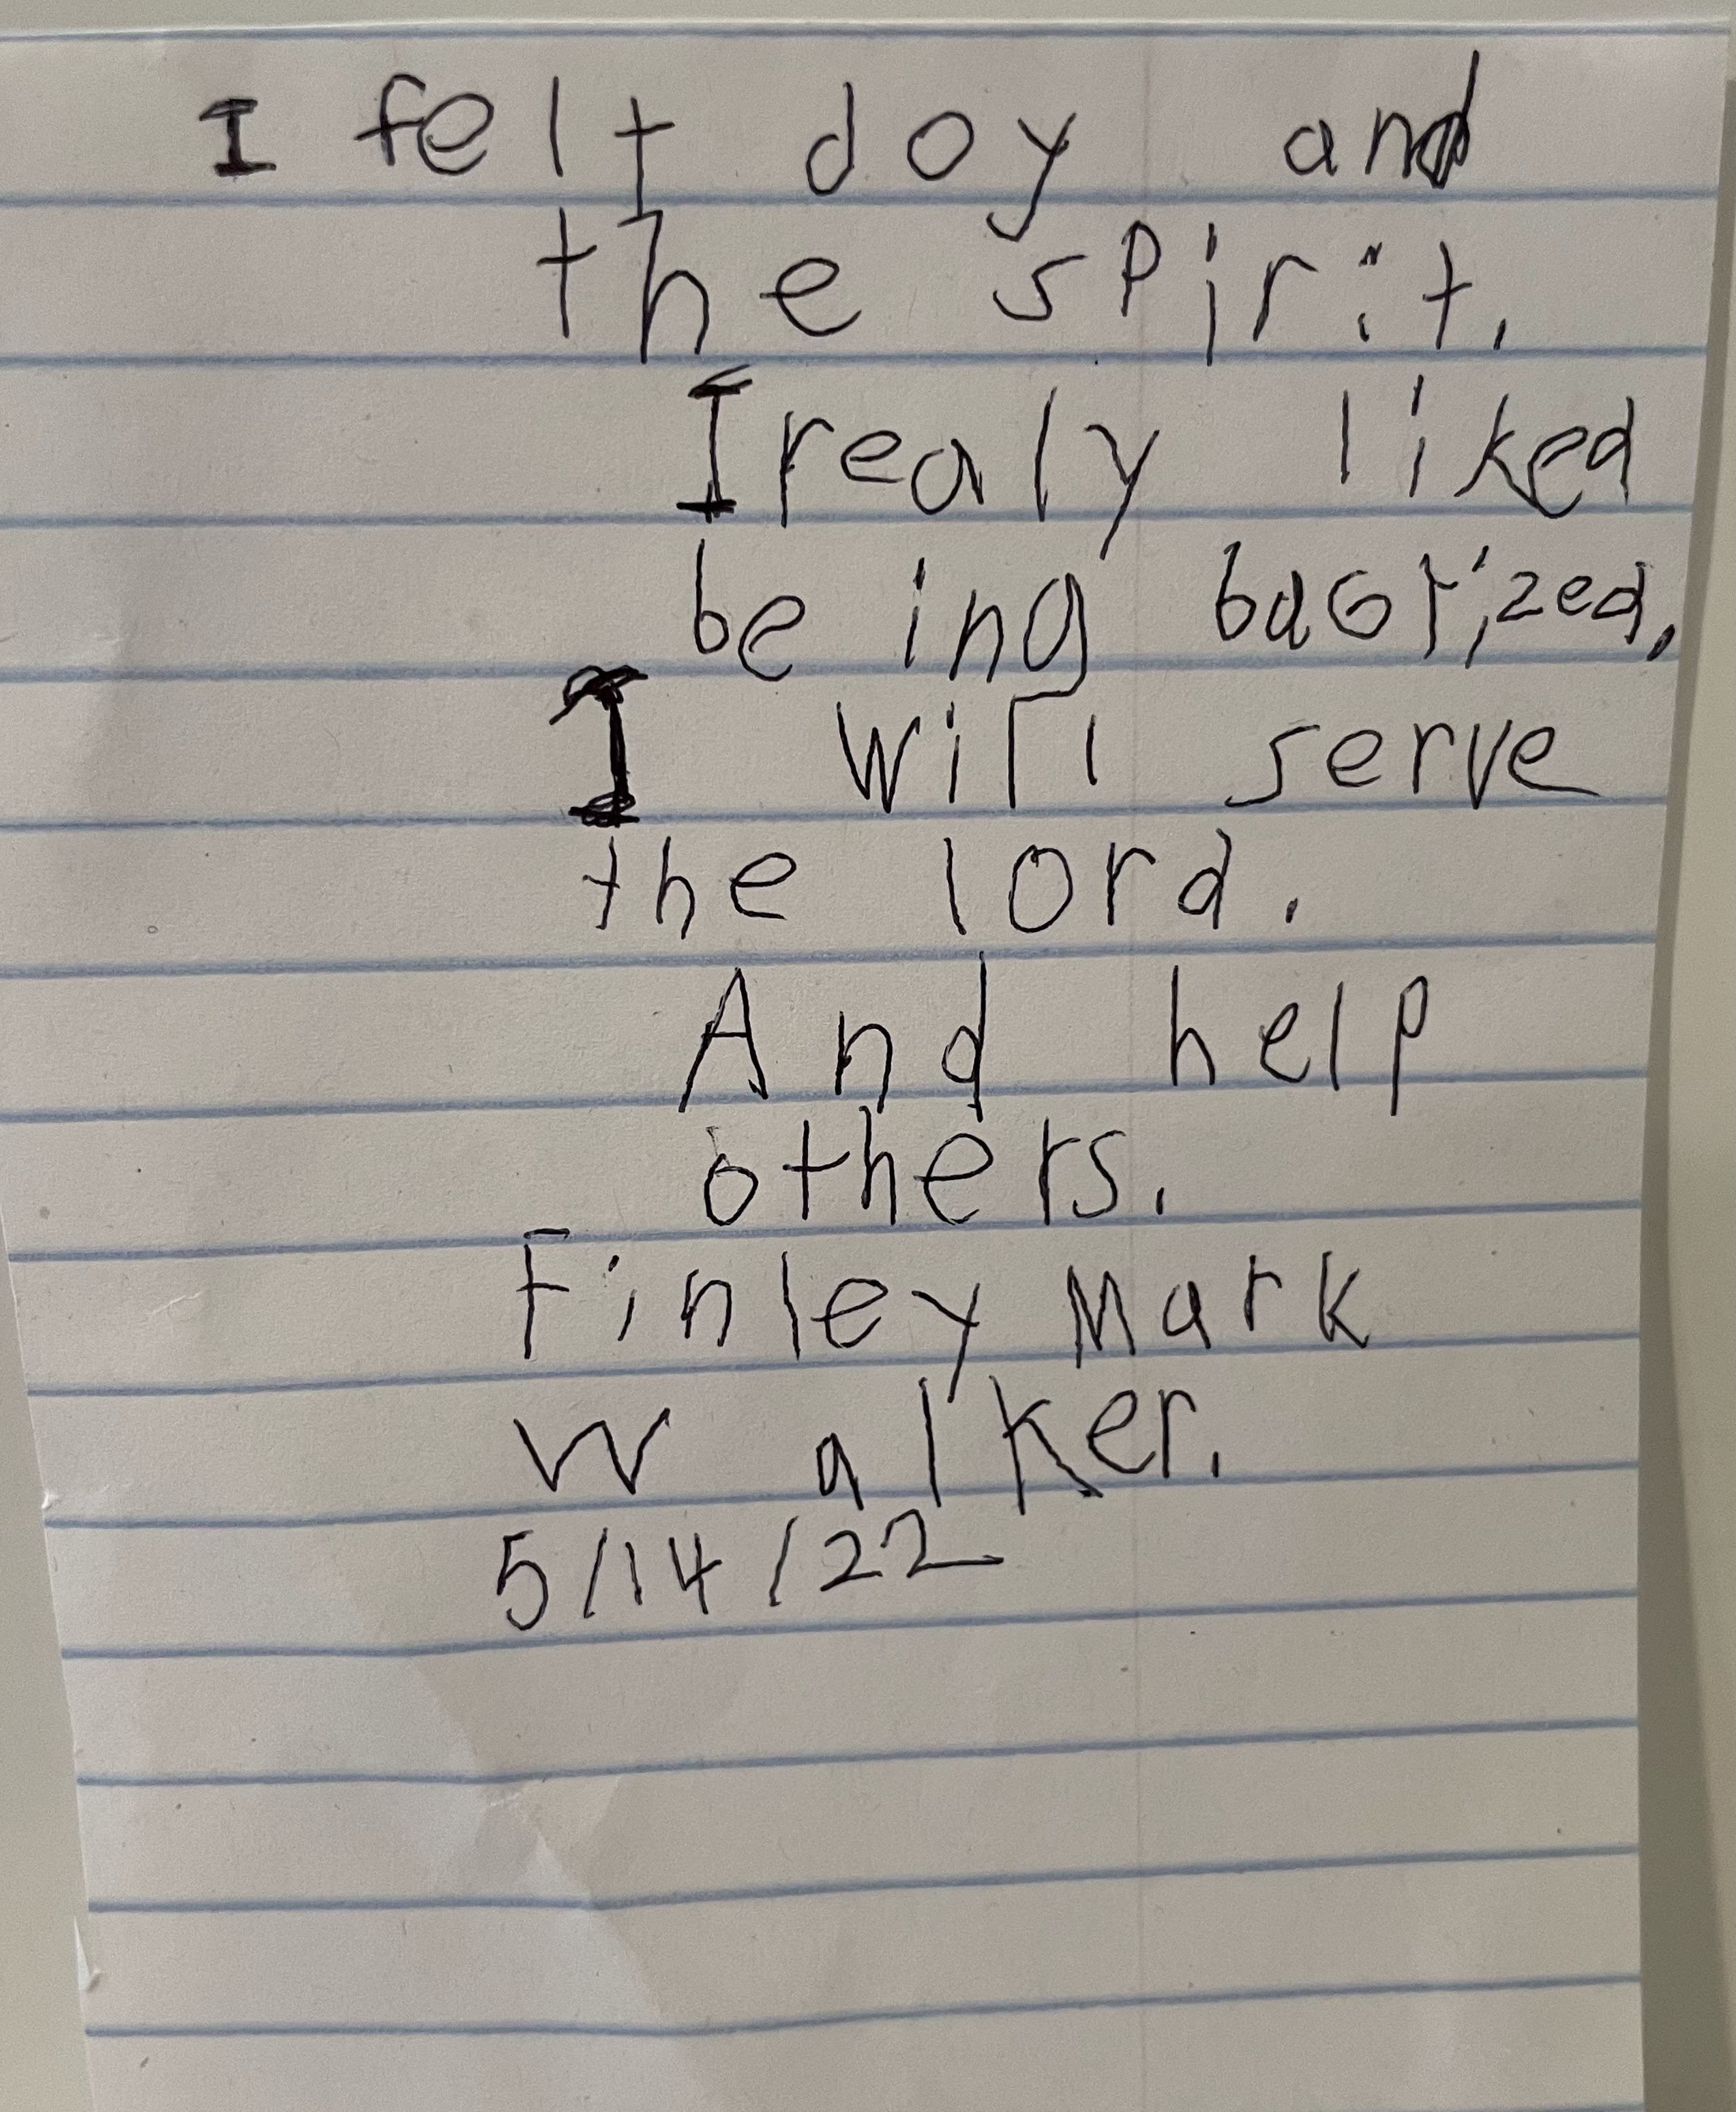 I felt doy and
the spirit.
I realy liked
being baptized.
I will serve
the lord.
And help
others.
Finley Mark
Walker.
5/14/22